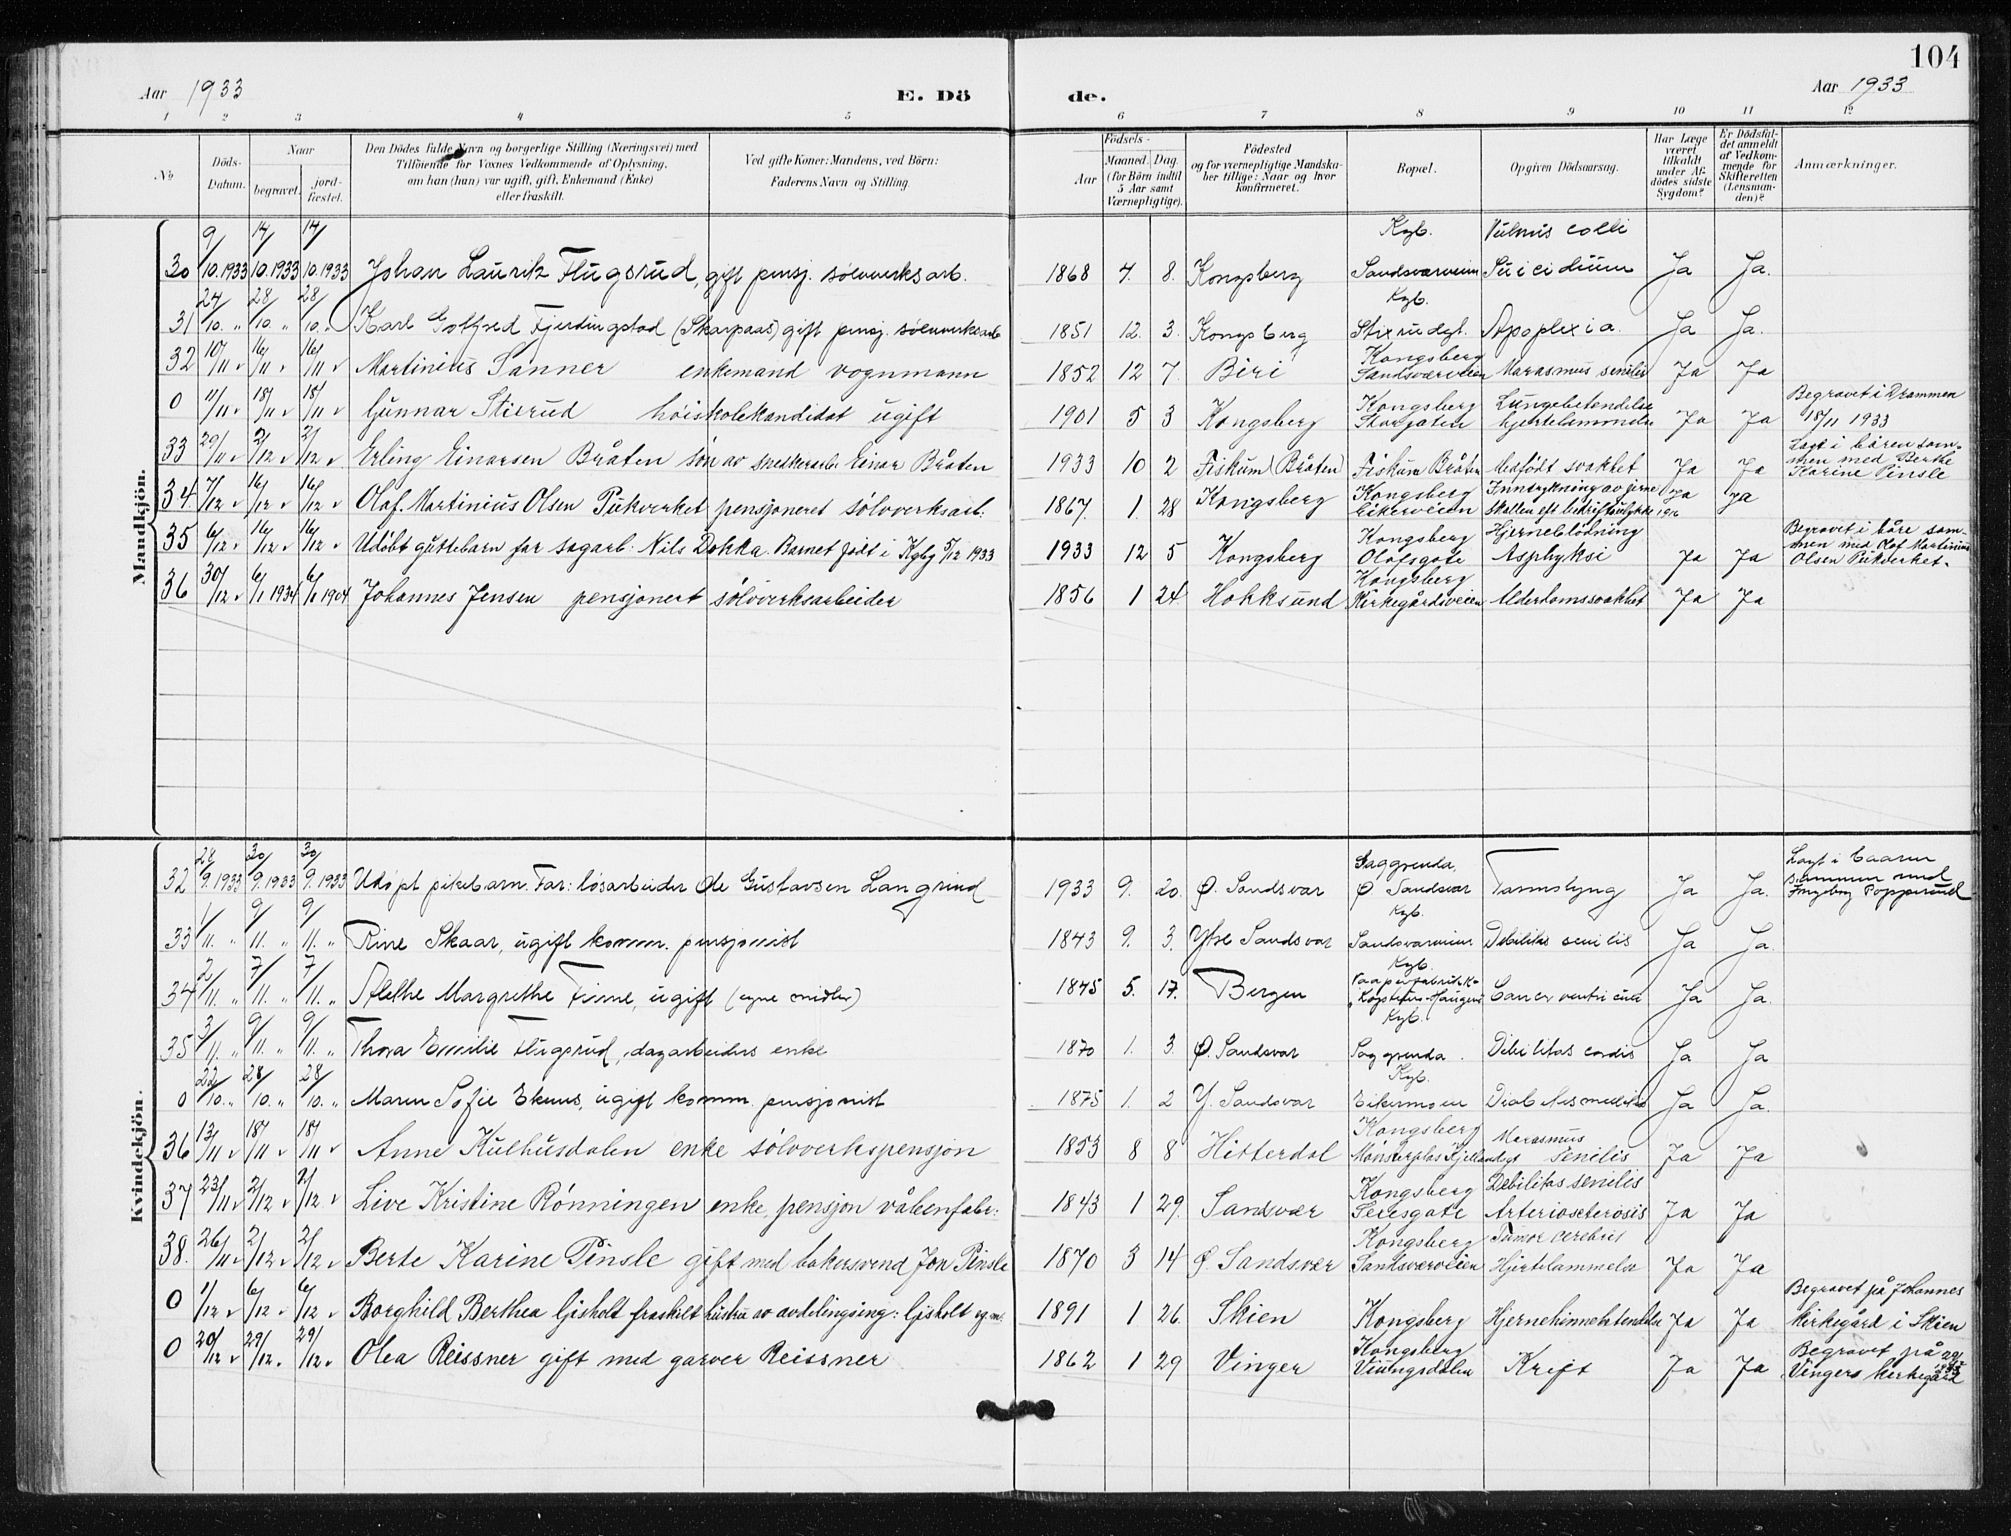 104
Aar 1933 E. Dö de. Aar 1933
1 2 3 4 5 6 7 8 9 10 11 12
No Döds-Datum. Naar begravet. jord-fæstet. Den Dödes fulde Navn og borgerlige Stilling (Næringsvei) med Tilföiende for Voxnes Vedkommende af Oplysning, om han (hun) var ugift, gift, Enkemand (Enke) eller fraskilt. Ved gifte Koner: Mandens, ved Börn: Faderens Navn og Stilling. Födsels- Aar Maaned. Dag. (for Börn indtil 5 Aar samt Værnepligtige). Födested og for værnepligtige Mandskaber tillige: Naar og hvor konfirmeret. Bopæl. Opgiven Dödsaarsag. Har Læge været tilkaldt under Afdödes sidste Sygdom? Er Dödsfaldet anmeldt af Vedkommende for Skifteretten (Lensmanden)? Anmærkninger.
Mandkjön.
30 9/10.1933 14/10.1933 14/10.1933 Johan Lauritz Flugsrud, gift pensj. sølvverksarb. 1868 7. 8. Kongsberg Kgb. Sandsværveien Vulnus colli Suicidium Ja Ja.
31 24/10. " 28/10. " 28/10. " Karl Gotfred Fjerdingstad (Skarpaas) gift pensj. sølvverksarb 1851 12. 3. Kongsberg Kgb. Stixrudgt. Apoplexia. Ja Ja.
32 10/11 " 16/11 " 16/11 " Martinius Sanner enkemand vognmann 1852 12 7 Biri Kongsberg Sandsværveien Marasmus senilis Ja Ja
0 11/11 " 18/11 " 18/11 " Gunnar Stixrud høiskolekandidat ugift 1901 5 3 Kongsberg Kongsberg Storgaten Lungebetendelse hjertelammelse Ja Ja Begravet i Drammen 18/11 1933
33 29/11 " 2/12 " 2/12 " Erling Einarsen Bråten søn av snekkerarb. Einar Bråten 1933 10 2 Fiskum (Bråten) Fiskum Bråten Medfødt svakhet Ja Ja Lagt i båren sammen med Berthe Karine Pinsle
34 7/12 " 16/12 " 16/12 " Olaf Martinius Olsen Pukverket pensjoneret sølvverksarb. 1867. 1. 28 Kongsberg Kongsberg Eikerveien Inntrykning av jerne skallen eft bedriftsulykke 1916 Ja Ja
35 6/12 " 16/12 " 16/12 " Udøbt guttebarn far sagarb: Nils Dokka. Barnet født i Kgbg 5/12 1933 1933 12 5 Kongsberg Kongsberg Olafsgate Hjerneblödning Asphyksi Ja Ja Begravet i båre sammen med Olaf Martinius Olsen Pukverket.
36 30/12 " 6/1 1934 6/1 1904 Johannes Jensen pensjonert sølvverksarbeider 1856 1 24 Hokksund Kongsberg Kirkegårdsveien Alderdomssvakhet Ja Ja
Kvindekjön.
32 28/9.1933 30/9.1933 30/9.1933 Udøpt pikebarn. Far: løsarbeider Ole Gustavsen Langrind 1933 9. 20. Ø. Sandsvær Saggrenda, Ø Sandsvær Ja Ja. Lagt i baaren sammen med Ingborg Popperud
33 1/11. " 9/11. " 9/11. " Rine Skaar, ugift komm. pensjonist 1843 9. 3. Ytre Sandsvær Kgb. Sandsværveien Debilitas senilis Ja Ja.
34 2/11. " 7/11. " 7/11. " Alethe Margrethe Finne, ugift (egne midler) 1845 5. 17. Bergen Kgb. Cancer ventriculi Ja Ja.
35 3/11. " 9/11. " 9/11. " Thora Emilie Flugsrud, dagarbeiders enke 1870 1. 3. Ø. Sandsvær Kgb. Saggrenda. Debilitas cordis Ja Ja
0 22/10. " 28/10. " 28/10. " Maren Sofie Ekenes, ugift komm. pensjonist 1875 1. 2 Y. Sandsvær Kgb. Eikermoen Diabetes mellitus Ja Ja.
36 13/11 " 18/11 " 18/11 " Anne Kulhusdalen enke sølvverkspensjon 1853 8 8 Hitterdal Kongsberg Mønsterplas Kjellandsgt Marasmus senilis Ja Ja
37 23/11 " 2/12 " 2/12 " Live Kristine Rønningen enke, pensjon våbenfabr: 1843 1 29. Sandsvær Kongsberg Seiersgate Debilitas senilis Arteriosclerosis Ja Ja
38. 26/11 " 2/12 " 2/12 " Berte Karine Pinsle gift med bakersvend Jon Pinsle 1870 3 14 Ø. Sandsvær Kongsberg Sandsværveien Tumor cerebri Hjertelammelse Ja Ja
0 1/12 " 6/12 " 6/12 " Borghild Berthea Ljsholt fraskilt hustru av avdelingsing: Ljsholt 1891 1 26. Skien Kongsberg Hjernehinnebetendelse Ja Ja Begravet på Johannes kirkegård i Skien
0 20/12 " 29/12. 29/12 " Olea Reissner gift med garver Reissner 1862 1 29 Vinger Kongsberg Viungsdalen Kreft Ja Ja Begravet på Vingers kirkegård 29/12 1933